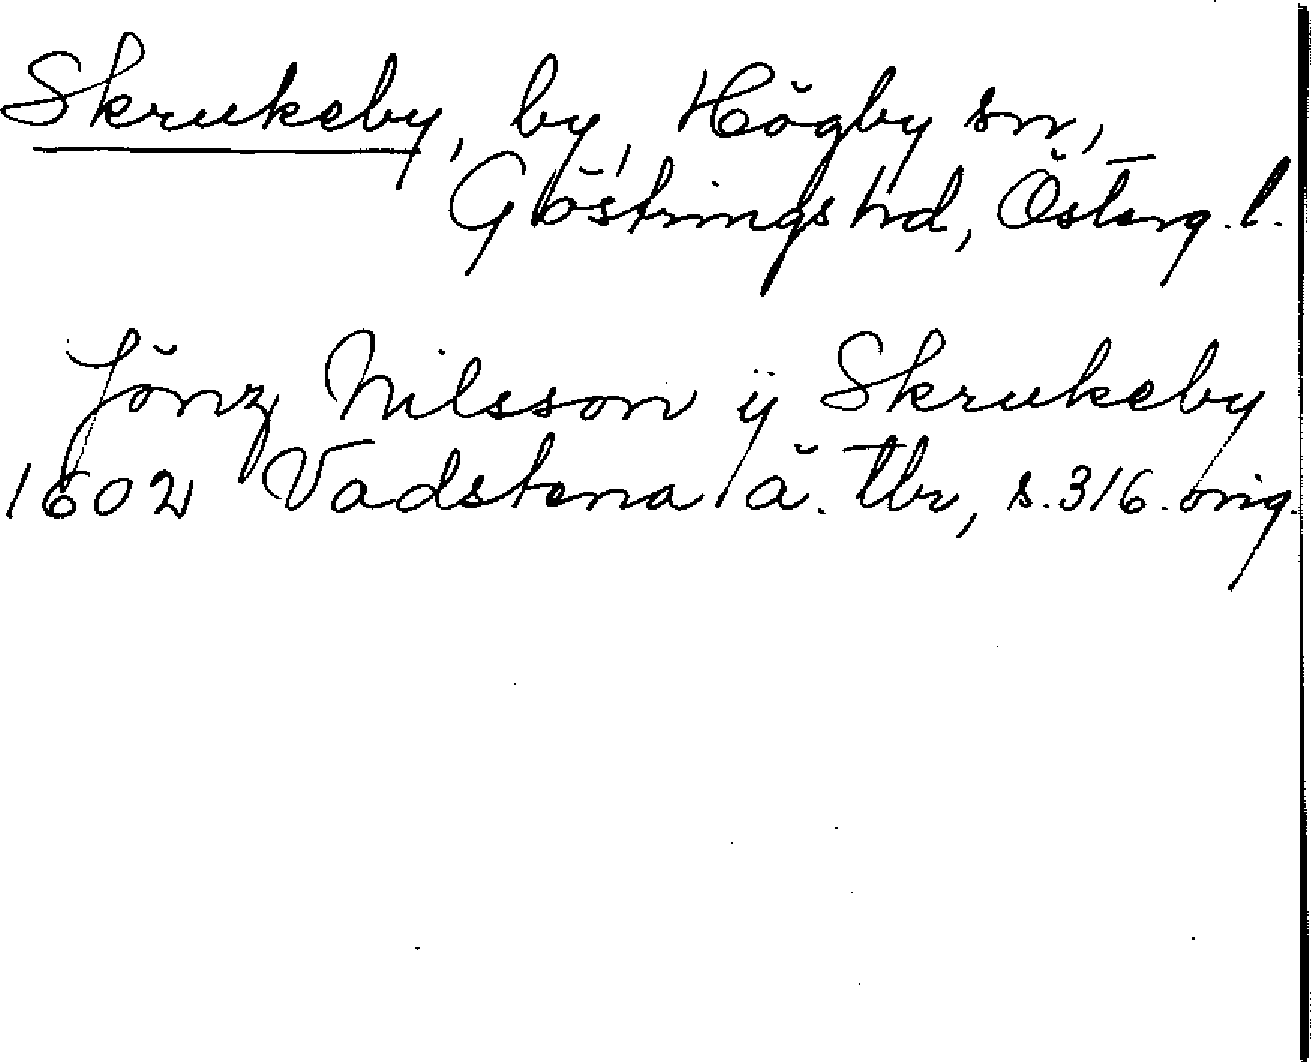 Skrukeby, by, Högby sn,
Göstrings hd, Österg. l.
Jönz Nilsson ÿ Skrukeby
1602 Vadstena ä. tbr, s. 316. orig.